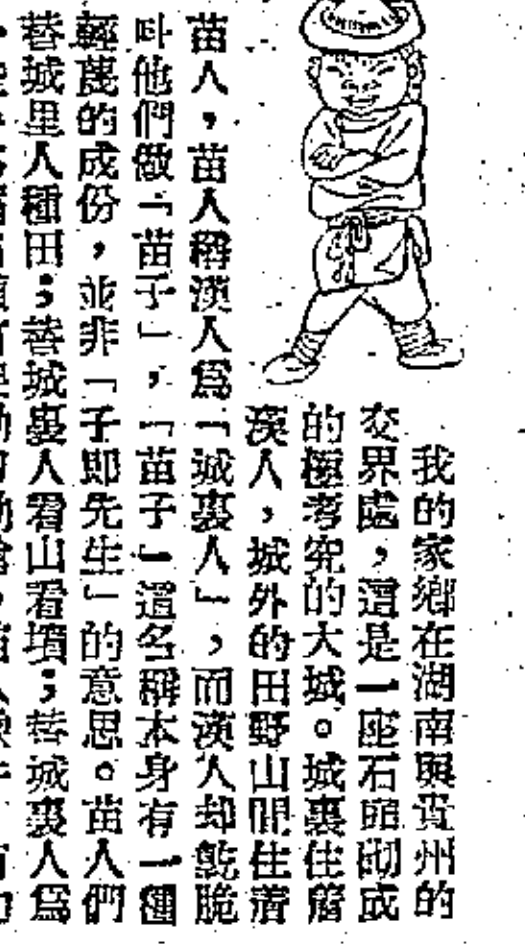 我的家鄉在湖南與貴州的
交界處，這是一座石頭砌成
的極考究的大城。城裏住着
漢人，城外的田野山間住着
苗人，苗人稱漢人爲「城裏人」，而漢人却乾脆
叫他們做「苗子」，「苗子」這名稱本身有一種
輕蔑的成份，並非「子即先生」的意思。苗人們
替城里人種田；替城裏人看山看墳；替城裏人爲